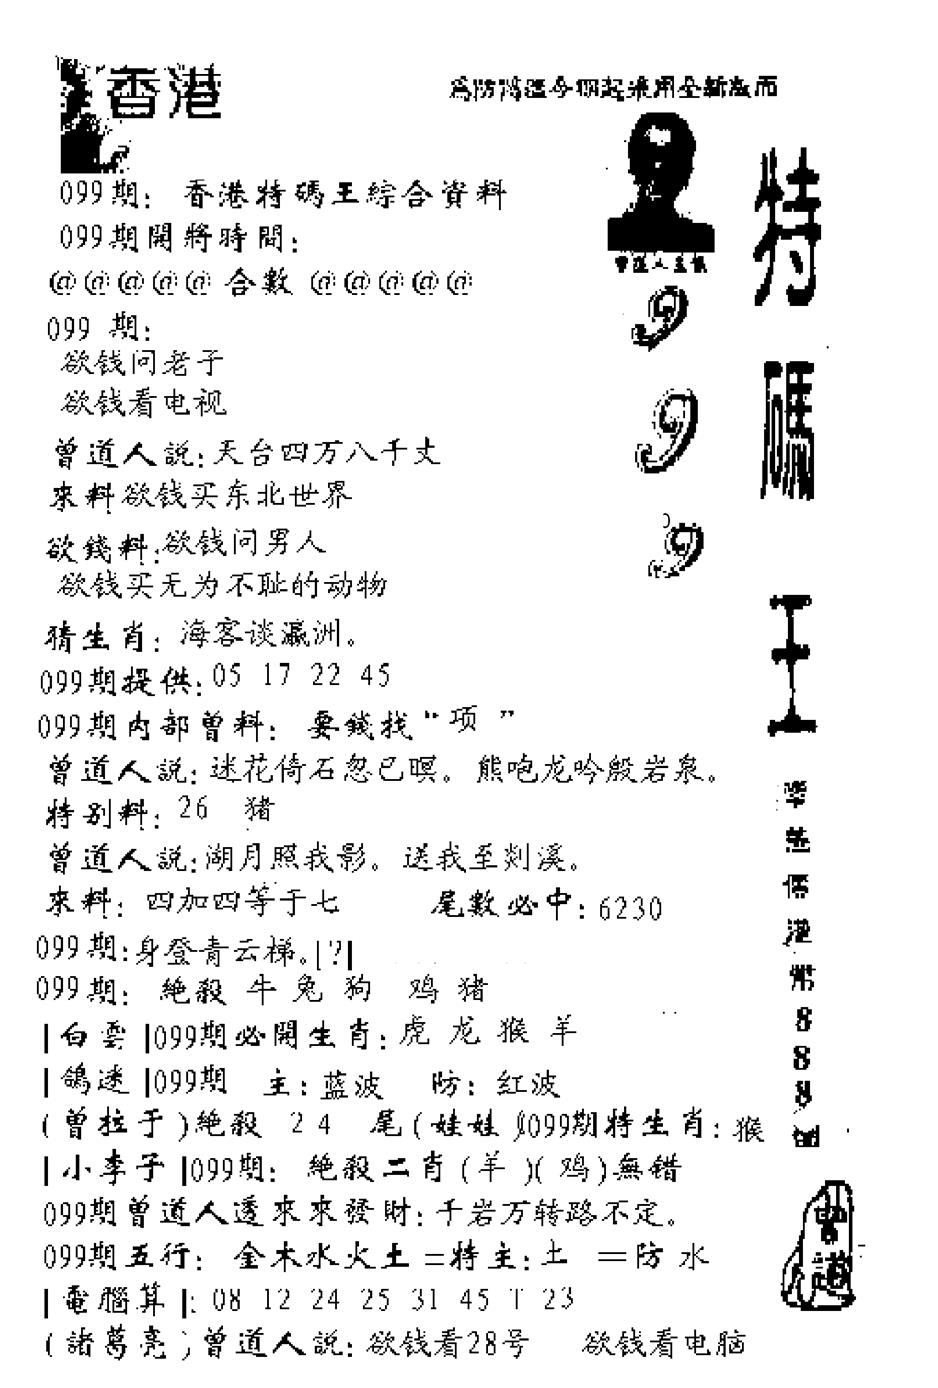 香港
為防 今 起 用全新 面
099期: 香港特碼王綜合資料
099期開將時間:
@@@@@ 合數 @@@@@
099 期:
欲钱问老子
欲钱看电视
曾道人説:天台四万八千丈
來料欲钱买东北世界
欲錢料:欲钱问男人
欲钱买无为不耻的动物
猜生肖: 海客谈瀛洲。
099期提供:05 17 22 45
099期内部曾料: 要錢找“项 ”
曾道人説:迷花倚石忽已暝。熊咆龙吟殷岩泉。
特别料: 26 猪
曾道人説:湖月照我影。送我至剡溪。
來料: 四加四等于七 尾數必中:6230
099期:身登青云梯。[?]
099期: 絶殺 牛 兔 狗 鸡 猪
|白雲|099期必開生肖:虎 龙 猴 羊
|鴿迷|099期 主:蓝波 防:红波
(曾拉于)絶殺 2 4 尾(娃娃)099期特生肖:猴
|小李子|099期: 絶殺二肖(羊)(鸡)無错
099期曾道人透來來發財:千岩万转路不定。
099期五行: 金木水火土=特主:土 =防 水
|電腦算|: 08 12 24 25 31 45 T 23
(諸葛亮)曾道人説:欲钱看28号 欲钱看电脑
曾道人
9
9
9
特碼王
港幣888
曾道